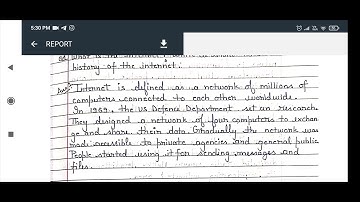 5:30 PM
REPORT
history of the internet.
Ans: Internet is defined as a network of millions of
computers connected to each other worldwide.
In 1969, the US. Defence Department set an research.
They designed a network of four computers to exchan
ge and share their data. Gradually the network was
made accessible to private agencies and general public
People started using it for sending messages and
files.